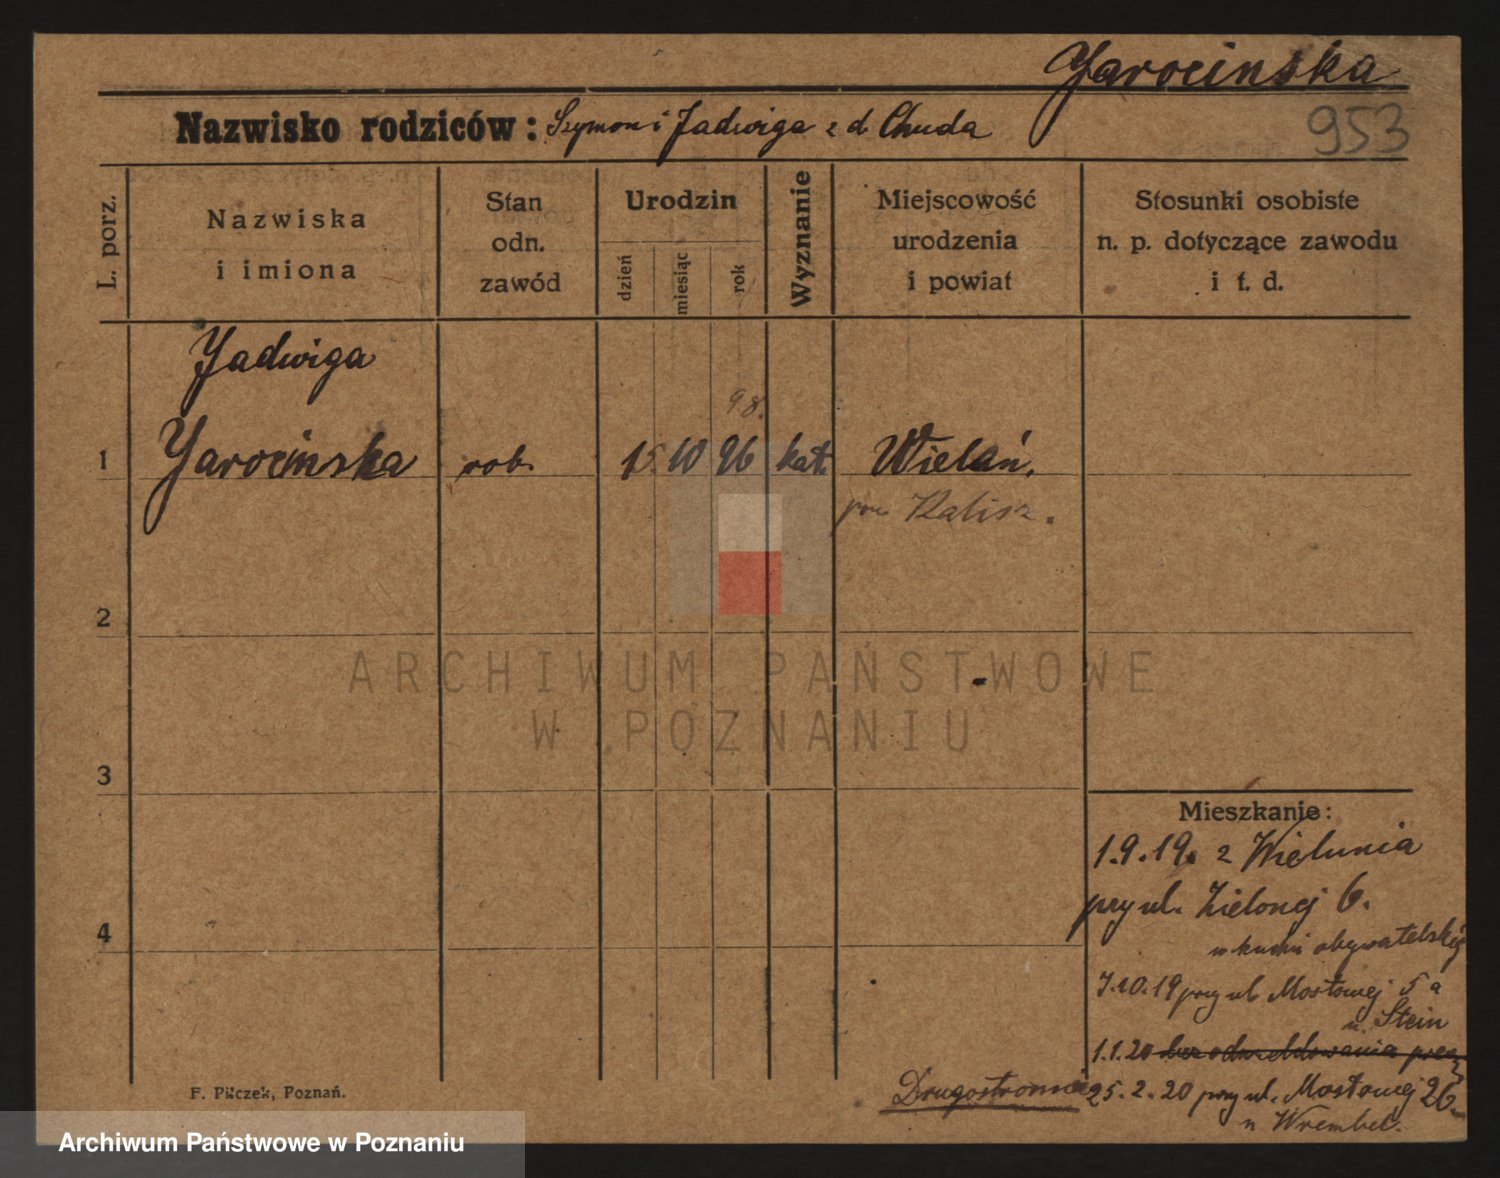 Jarocinska
953
Nazwisko rodziców: Szymon i Jadwiga z d. Chuda
L. porz.
Nazwiska
i imiona
Stan
odn.
zawód
Urodzin
dzień
miesiąc
rok
Wyznanie
Miejscowość
urodzenia
i powiat
Stosunki osobiste
n. p. dotyczące zawodu
i t. d.
Jadwiga
98.
1 Jarocinska rob. 15 10 96 kat. Wieluń.
pow Kalisz.
2
ARCHIWUM PAŃSTWOWE
W POZNANIU
3
Mieszkanie:
1.9.19. z Wielunia
przy ul. Zielonej 6.
w kuchni obywatelskiej
4
7.10.19 przy ul. Mostowej 5a
u. Stein
1.1.20 bez odmeldowania precz
25.2.20 przy ul. Mostowej 26.
u Wrembel.
Drugostronnie
F. Pilczek, Poznań.
Archiwum Państwowe w Poznaniu